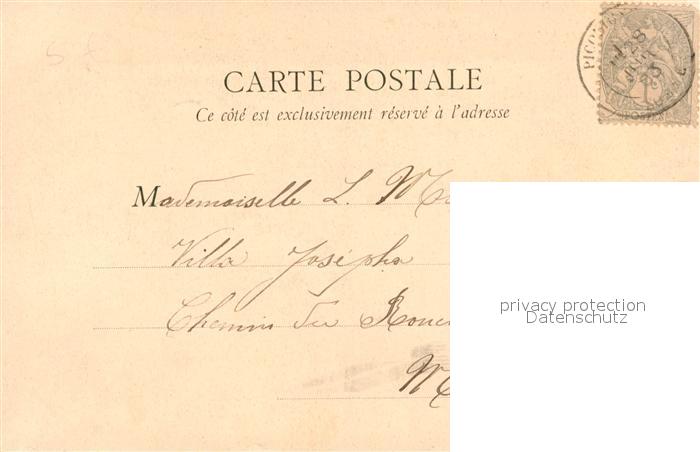 CARTE POSTALE
Ce côté est exclusivement réservé à l'adresse
Mademoiselle L.
Villa Josépha
Chemin du
privacy protection
Datenschutz